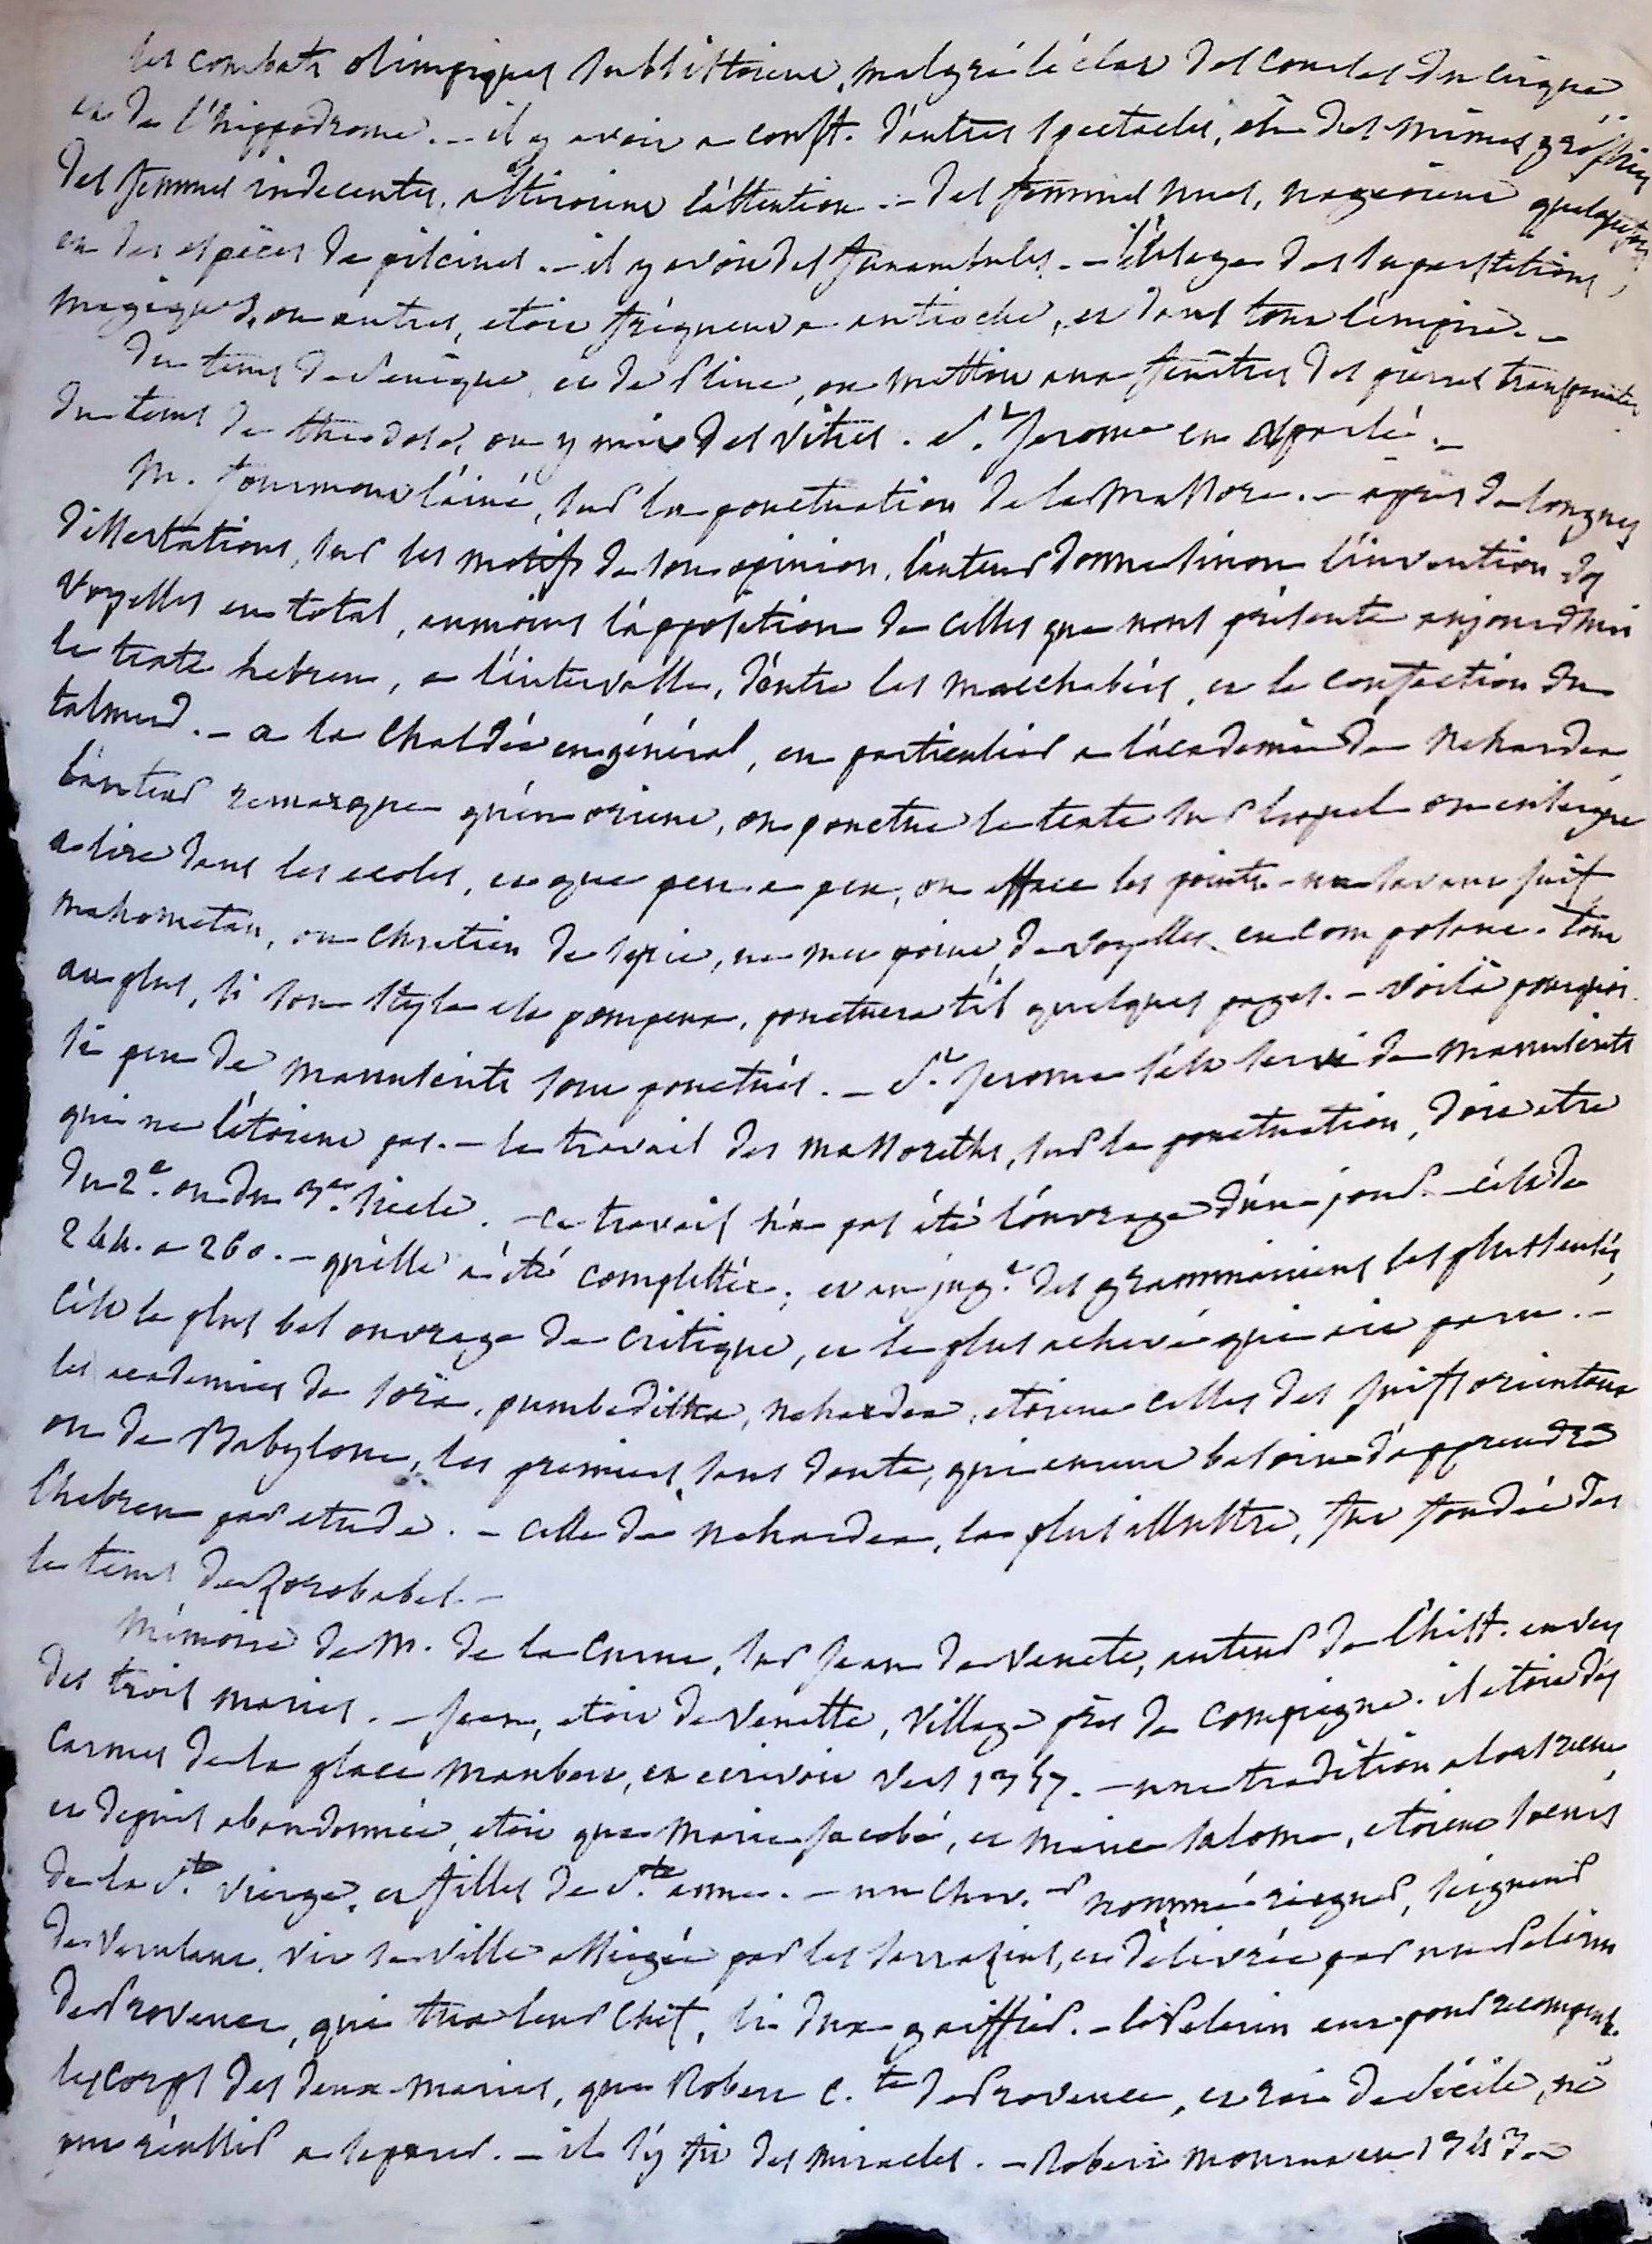 les combats olimpiques subsistoient, malgré l'éclat des courses du cirque
et de l'hippodrome. - il y avoit a const. d'autres spectacles, et des mimes grossiers
des femmes indecentes, attiroient l'attention. - des femmes nues, nageoient quelquefois
en des especes de piscines. - il y avoit des funambules. - l'usage des superstitions
magiques, ou autres, etoit fréquent a antioche, et dans tout l'empire. -
du tems de Seneque, et de Pline, on mettoit aux fenêtres des pierres transparentes
du tems de theodose, on y mit des vitres. St. Jerome en a parlé. -
M. fourmont l'ainé, sur la ponctuation de la Massore. - après de longues
dissertations, sur les motifs de son opinion, l'auteur donne sinon l'invention des
voyelles en total, aumoins l'apposition de celles que nous présente aujourd'hui
le texte hebreu, a l'intervalle, d'entre les macchabées, et la confection du
talmud. - a la Chaldée en général, en particulier a l'académie de Nehardea
l'auteur remarque qu'en orient, on ponctue le texte sur lequel on enseigne
a lire dans les ecoles, et que peu a peu, on efface les points. - un savant juif,
mahometan, ou chretien de syrie, ne met point de voyelles en composant. tout
au plus, si son style est pompeux, ponctuera t'il quelques pages. - voila pourquoi
si peu de manuscrits sont ponctués. - St. Jerome s'est servi de manuscrits
qui ne l'étoient pas. - le travail des massorethes, sur la ponctuation, doit etre
du 2e. ou du 3e. siecle. - ce travail n'a pas été l'ouvrage d'un jour. - c'est de
244. a 260. - qu'elle a été complettée; et au jugt. des grammairiens les plus sensés,
c'est le plus bel ouvrage de critique, et le plus achevé qui ait paru. -
les academies de sora, pumbeditha, nehardea, etoient celles des juifs orientaux
ou de Babylone, les premiers sans doute, qui eurent besoin d'apprendre
l'hebreu par etude. - celle de nehardea, la plus illustre, fut fondée des
le tems de Zorobabel. -
Mémoire de M. de la Curne, sur Jean de Venete, auteur de l'hist. en vers
des trois maries. - Jean, etoit de Venette, village près de Compiegne. il etoit des
carmes de la place maubert, et ecrivoit vers 1357. - une tradition alors recue,
et depuis abandonnée, etoit que Marie Jacobé, et Marie Salomé, etoient soeurs
de la Ste. vierge, et filles de Ste. anne. - un chev.er nommé seigneur
de vit sa ville assiegée par les sarrasins, et délivrée par un Pelerin
de Provence, qui tua leur chef. - le Pelerin eut pour recompense
les corps des deux maries, que Robert c.te de Provence, et roi de Sicile, ne
put réussir a separer. - il s'y fit des miracles. - Robert mourut en 1343 de